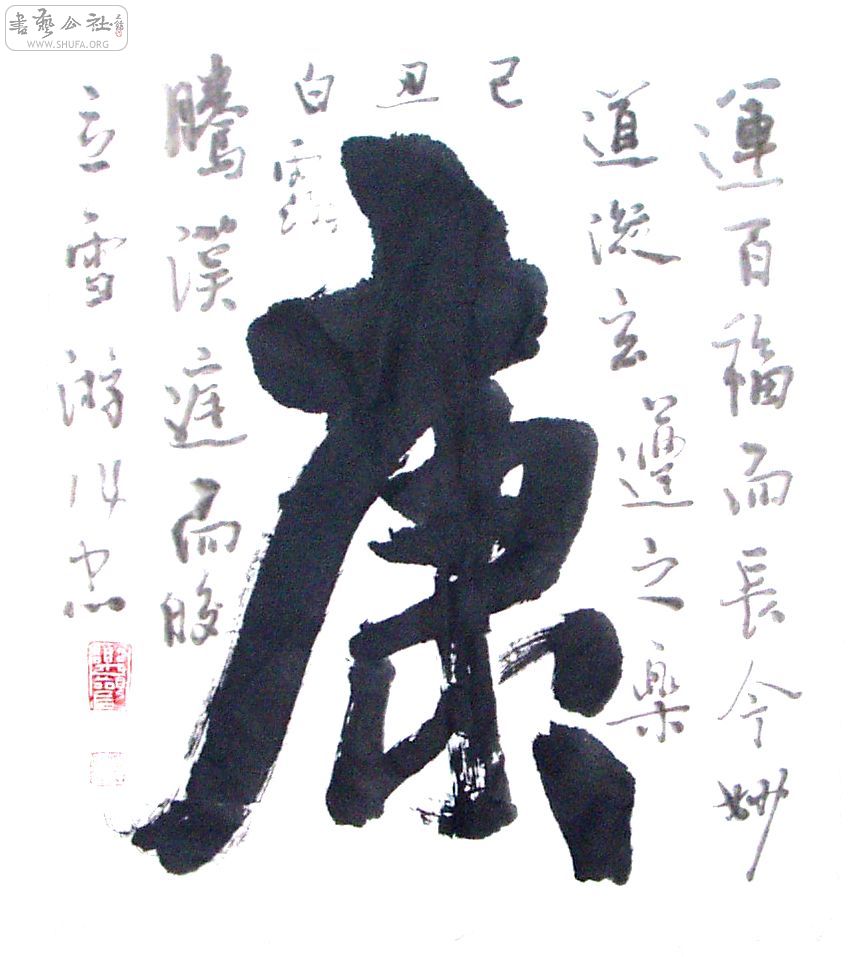 書藝公社
WWW.SHUFA.ORG
運百福而長今妙
道凝玄遵之樂
康
騰漢庭而皎
己丑
白露
立雪游